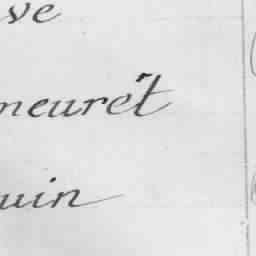 ve
meurét
uin